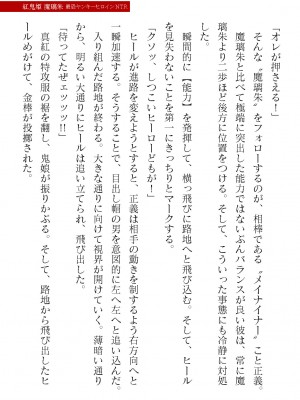 紅鬼姫 魔璃朱 最強ヤンキーヒロインNTR
「オレが押さえる！」
そんな〝魔璃朱〟をフォローするのが、相棒である〝メイナイナー〟こと正義。
魔璃朱と比べて極端に突出した能力ではないぶんバランスが良い彼は、常に魔
璃朱より二歩ほど後方に位置をつける。そして、こういった事態にも冷静に対処
を見失わないことを第一にきっちりとマークする。
瞬間的に【能力】を発揮して、横っ飛びに路地へと飛び込む。そして、ヒール
「クソッ、しつこいヒーローどもが！」
ヒールが進路を変えようとすると、正義は相手の動きを制するよう右方向へと
一瞬加速する。そうすることで、目出し帽の男を意図的に左へ左へと追い込んだ。
入り組んだ路地が終わる。大きな通りに向けて視界が開けていく。薄暗い通り
から、明るい大通りにヒールは追い立てられ、飛び出した。
「待ってたぜェッッッ!!」
真紅の特攻服の裾を翻し、鬼娘が振りかぶる。そして、路地から飛び出したヒ
ールめがけて、金棒が投擲された。